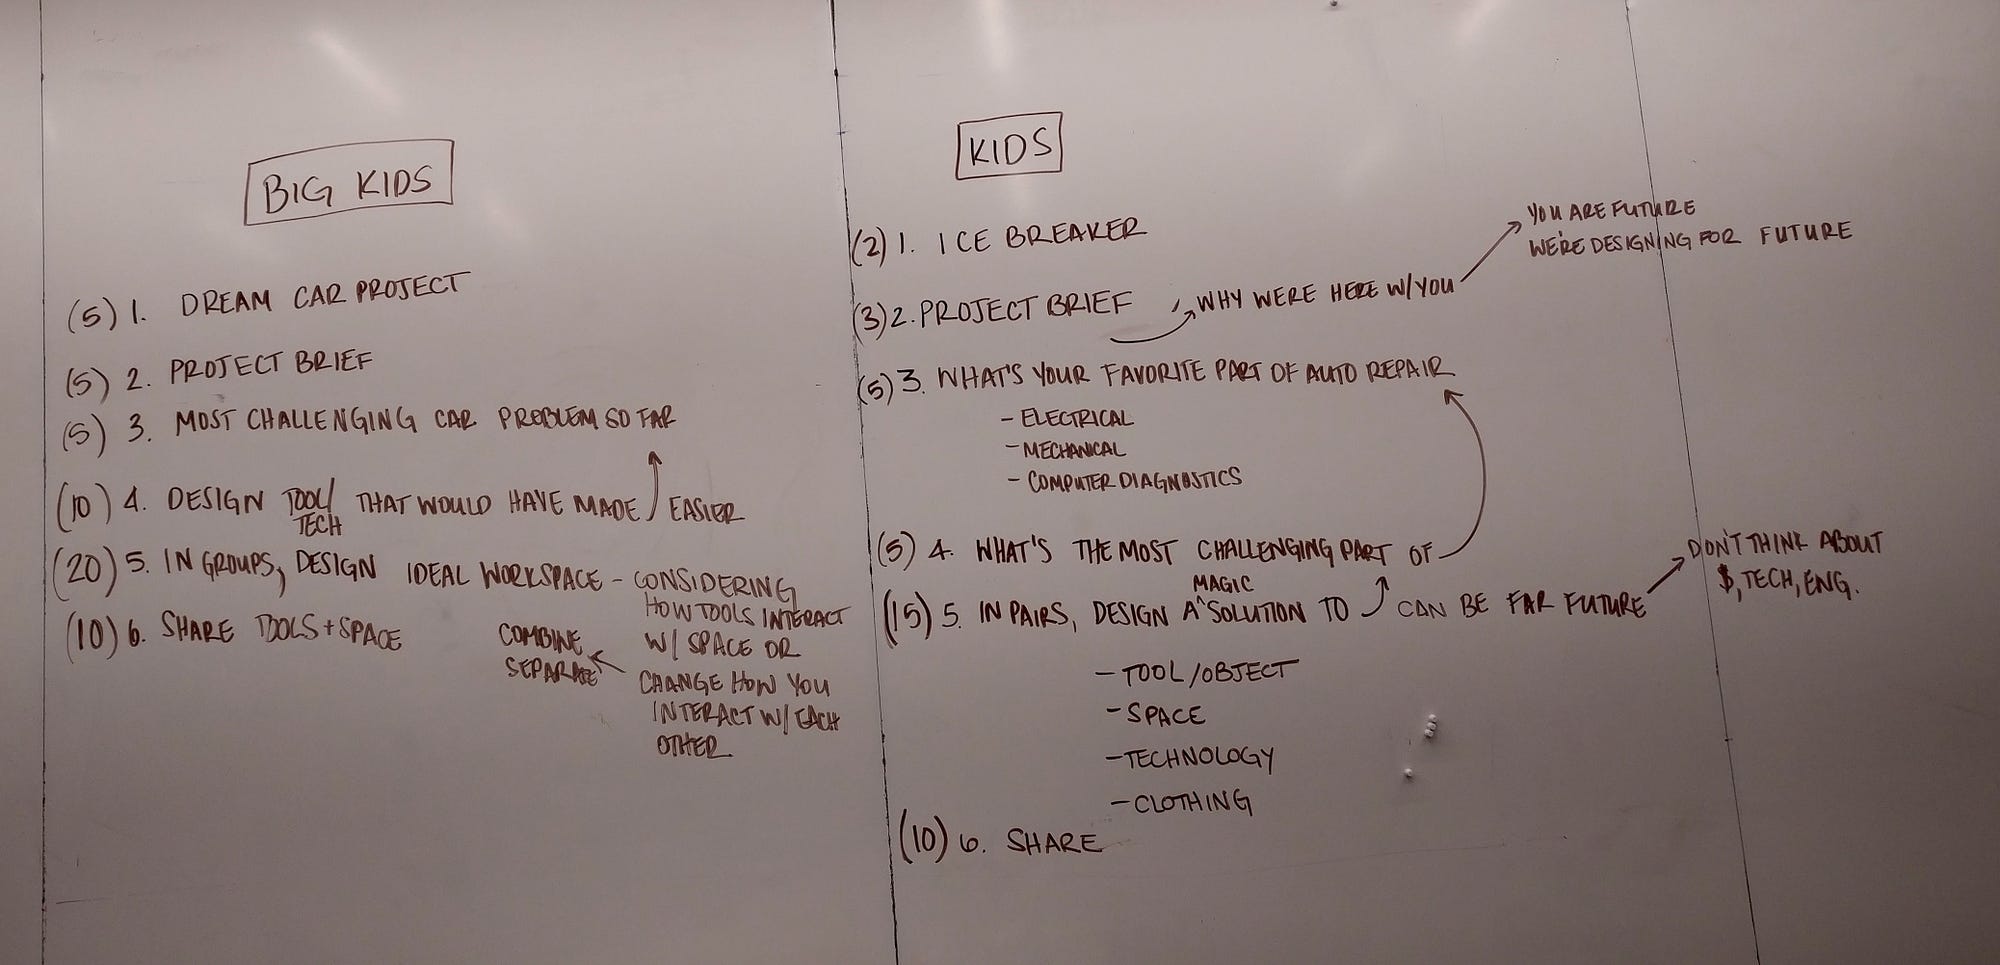 BIG KIDS
(5) 1. DREAM CAR PROJECT
(5) 2. PROJECT BRIEF
(5) 3. MOST CHALLENGING CAR PROBLEM SO FAR
(10) 4. DESIGN TOOL/ THAT WOULD HAVE MADE EASIER
TECH
(20) 5. IN GROUPS, DESIGN IDEAL WORKSPACE - CONSIDERING
HOW TOOLS INTERACT
W/ SPACE OR
CHANGE HOW YOU
INTERACT W/ EACH
OTHER
COMBINE
SEPARATE
(10) 6. SHARE TOOLS + SPACE
KIDS
(2) 1. ICE BREAKER
(3) 2. PROJECT BRIEF
WHY WERE HERE W/ YOU
YOU ARE FUTURE
WE'RE DESIGNING FOR FUTURE
(5) 3. WHAT'S YOUR FAVORITE PART OF AUTO REPAIR
- ELECTRICAL
- MECHANICAL
- COMPUTER DIAGNOSTICS
(5) 4. WHAT'S THE MOST CHALLENGING PART OF
MAGIC
(15) 5. IN PAIRS, DESIGN A ^ SOLUTION TO CAN BE FAR FUTURE
DON'T THINK ABOUT
$, TECH, ENG.
- TOOL/OBJECT
- SPACE
- TECHNOLOGY
- CLOTHING
(10) 6. SHARE